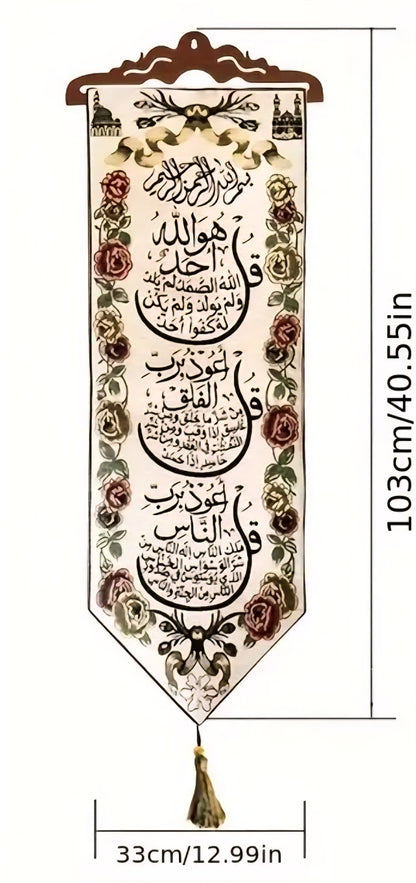 بسم الله الرحمن الرحيم
قل هو الله
أحد
الله الصمد لم يلد
ولم يولد ولم يكن
له كفوا أحد
قل أعوذ برب
الفلق
من شر ما خلق ومن شر
غاسق إذا وقب ومن شر
النفثت في العقد ومن شر
حاسد إذا حسد
قل أعوذ برب
الناس
ملك الناس إله الناس من
شر الوسواس الخناس
الذي يوسوس في صدور
الناس من الجنة والناس
103cm/40.55in
33cm/12.99in